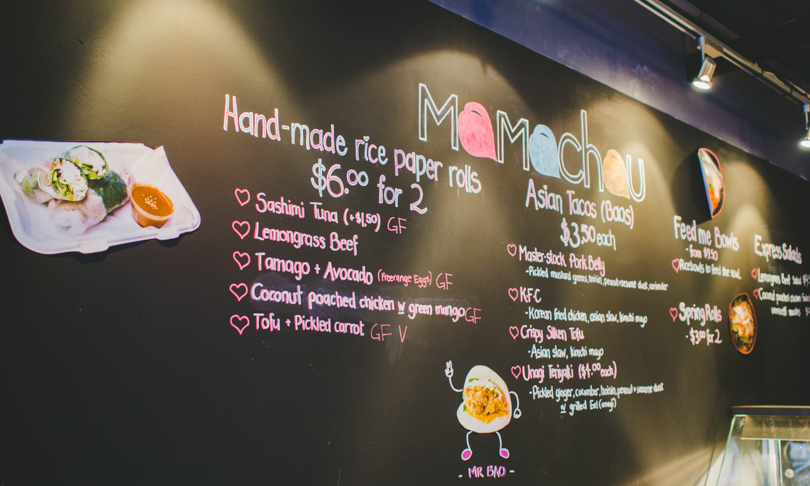 Mamachau
Hand-made rice paper rolls
$6.00 for 2
Sashimi Tuna (+$1.50) GF
Lemongrass Beef
Tamago + Avocado (Freerange Eggs) GF
Coconut poached chicken w green mango GF
Tofu + Pickled carrot GF V
Asian Tacos (Baos)
$3.50 each
Master-stock Pork Belly
-Pickled mustard greens, hoisin, peanut+sesame dust, coriander
KFC
- Korean fried chicken, asian slaw, kimchi mayo
Crispy Silken Tofu
-Asian slaw, kimchi mayo
Unagi Teriyaki ($4.00 each)
-Pickled ginger, cucumber, hoisin, peanut + sesame dust
w grilled Eel (unagi)
- MR BAO -
Feed me Bowls
- from $9.50
Ricebowls to feed the soul
Spring Rolls
- $3.00 for 2
Express Salads
Lemongrass Beef Salad
Coconut poached chicken